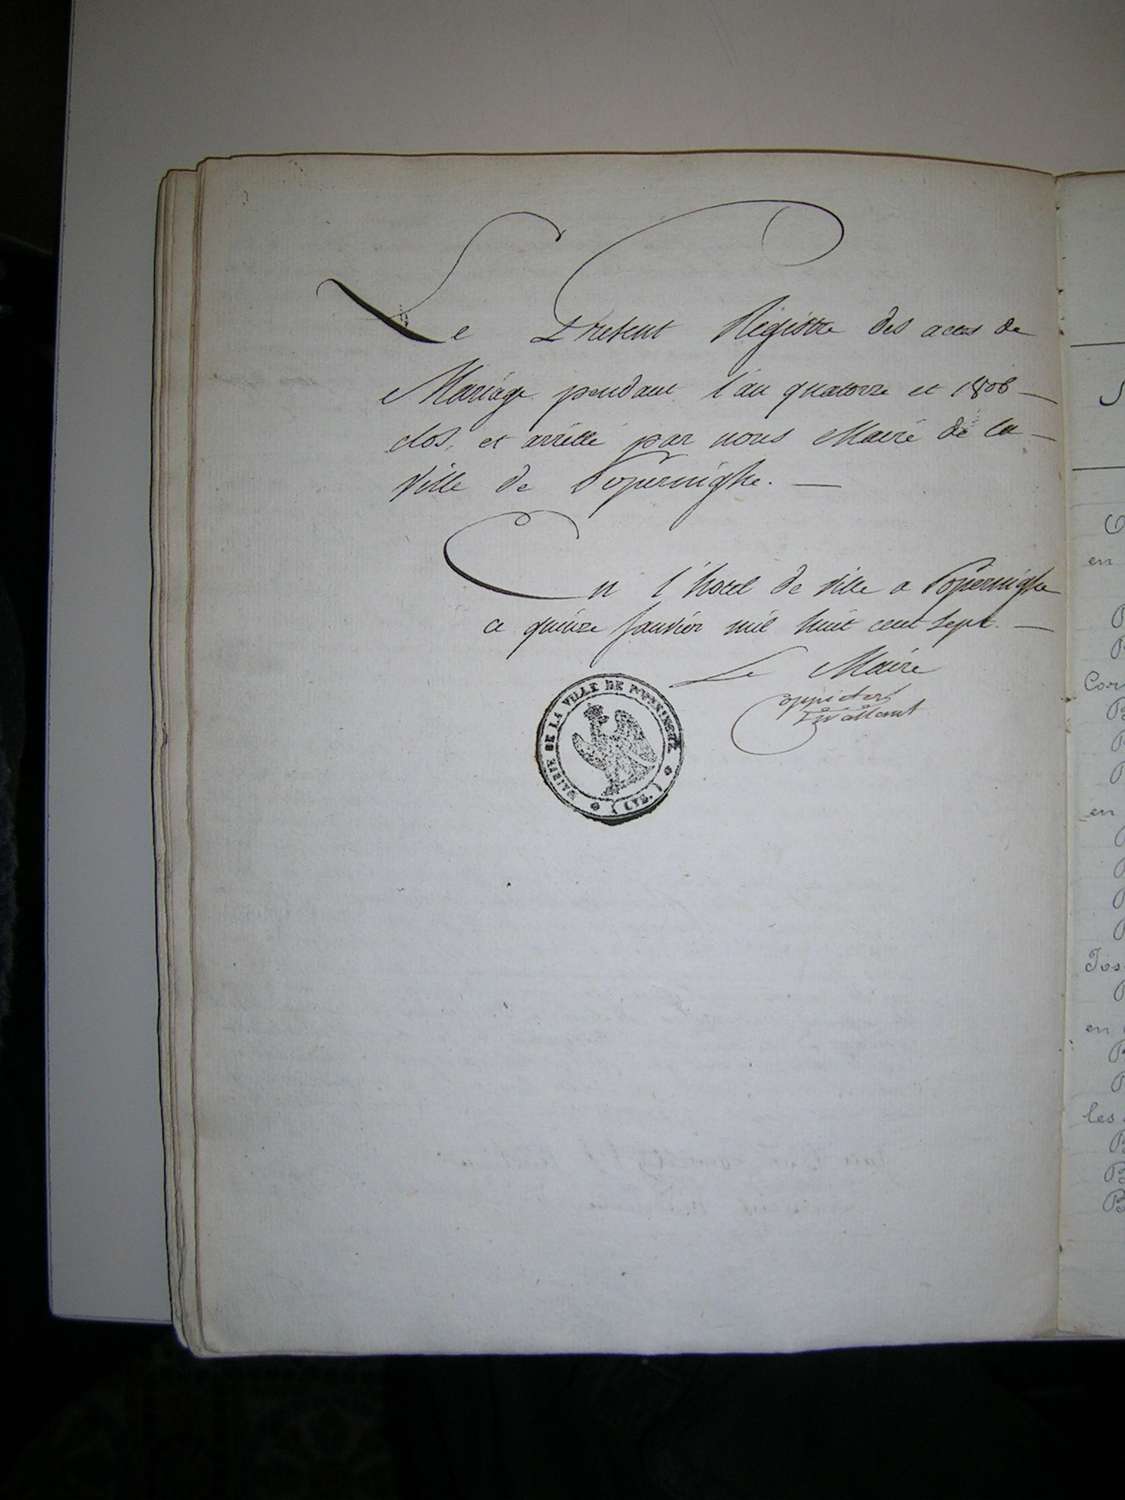 Le Present Régistre des actes de
Mariage pendant l'an quatorze et 1806 —
clos, et arrêtté par nous Maire de la —
Ville de Poperinghe. —
En l'hotel de ville a Poperinghe
ce quinze Janvier mil huit cent sept. —
Le Maire
MAIRIE DE LA VILLE DE POPERINGHE
(LYS.)
en
Cor
en
Jos
en
les